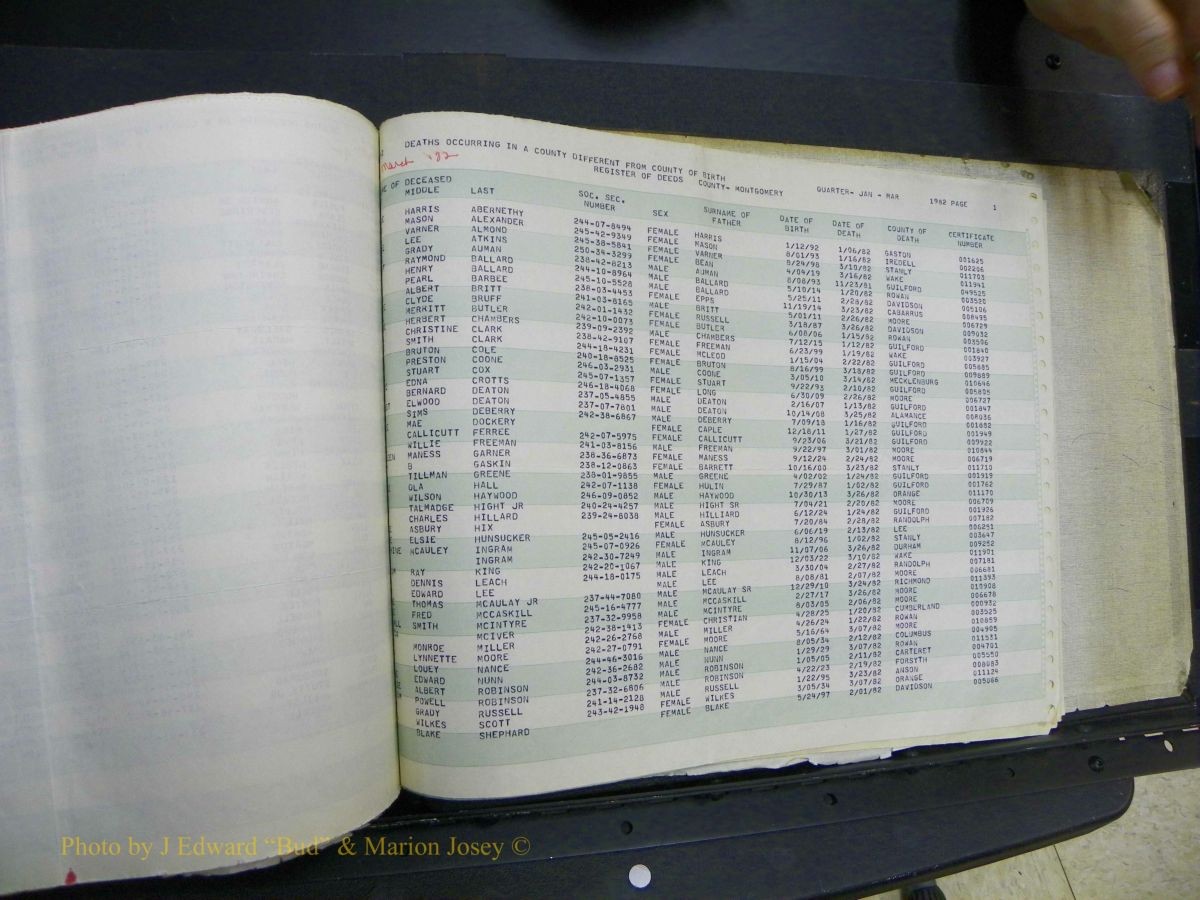 DEATHS OCCURRING IN A COUNTY DIFFERENT FROM COUNTY OF BIRTH
March '82
REGISTER OF DEEDS COUNTY- MONTGOMERY QUARTER- JAN - MAR 1982 PAGE 1
OF DECEASED SOC. SEC. SURNAME OF DATE OF DATE OF COUNTY OF CERTIFICATE
MIDDLE LAST NUMBER SEX FATHER BIRTH DEATH DEATH NUMBER
HARRIS ABERNETHY 244-07-8494 FEMALE HARRIS 1/12/92 1/06/82 GASTON 001625
MASON ALEXANDER 245-42-9349 FEMALE MASON 8/01/93 1/16/82 IREDELL 002206
VARNER ALMOND 245-38-5841 FEMALE VARNER 8/24/98 3/10/82 STANLY 011703
LEE ATKINS 250-34-3299 FEMALE BEAN 4/04/19 3/16/82 WAKE 011941
GRADY AUMAN 238-42-8213 MALE AUMAN 8/08/93 11/23/81 GUILFORD 049525
RAYMOND BALLARD 244-10-8964 MALE BALLARD 5/10/14 1/20/82 ROWAN 003520
HENRY BALLARD 245-10-5528 MALE BALLARD 5/25/11 2/28/82 DAVIDSON 005106
PEARL BARBEE 238-03-4453 FEMALE EPPS 11/19/14 3/23/82 CABARRUS 008495
ALBERT BRITT 241-03-8165 MALE BRITT 5/01/11 2/26/82 MOORE 006729
CLYDE BRUFF 242-01-1432 FEMALE RUSSELL 3/18/87 3/26/82 DAVIDSON 009032
MERRITT BUTLER 242-10-0073 MALE BUTLER 6/08/06 1/15/82 ROWAN 003506
HERBERT CHAMBERS 239-09-2392 MALE CHAMBERS 7/12/15 1/12/82 GUILFORD 001840
CHRISTINE CLARK 238-42-9107 FEMALE FREEMAN 6/23/99 1/19/82 WAKE 003927
SMITH CLARK 244-18-4231 FEMALE MCLEOD 1/15/04 2/22/82 GUILFORD 005685
BRUTON COLE 240-18-8525 FEMALE BRUTON 8/16/99 3/18/82 GUILFORD 009889
PRESTON COONE 246-03-2931 MALE COONE 3/05/10 3/14/82 MECKLENBURG 010646
STUART COX 245-07-1357 FEMALE STUART 9/22/93 2/10/82 GUILFORD 005805
EDNA CROTTS 246-18-4068 FEMALE LONG 6/30/09 2/26/82 MOORE 006727
BERNARD DEATON 237-05-4855 MALE DEATON 2/16/07 1/13/82 GUILFORD 001847
ELWOOD DEATON 237-07-7801 MALE DEATON 10/14/08 3/25/82 ALAMANCE 008036
SIMS DEBERRY 242-38-6867 MALE DEBERRY 7/09/18 1/16/82 GUILFORD 001882
MAE DOCKERY FEMALE CAPLE 12/18/11 1/27/82 GUILFORD 001949
CALLICUTT FERREE 242-07-5975 FEMALE CALLICUTT 9/23/06 3/21/82 GUILFORD 009922
WILLIE FREEMAN 241-03-8156 MALE FREEMAN 9/22/97 3/01/82 MOORE 010844
MANESS GARNER 238-36-6873 FEMALE MANESS 9/12/24 2/24/82 MOORE 006719
B GASKIN 238-12-0863 FEMALE BARRETT 10/16/00 3/23/82 STANLY 011710
TILLMAN GREENE 238-01-9855 MALE GREENE 4/02/02 1/24/82 GUILFORD 001919
OLA HALL 242-07-1138 FEMALE HULIN 7/29/87 1/02/82 GUILFORD 001762
WILSON HAYWOOD 246-09-0852 MALE HAYWOOD 10/30/13 3/26/82 ORANGE 011170
TALMADGE HIGHT JR 240-24-4257 MALE HIGHT SR 7/04/21 2/20/82 MOORE 006709
CHARLES HILLARD 239-24-8038 MALE HILLIARD 6/12/24 1/24/82 GUILFORD 001926
ASBURY HIX FEMALE ASBURY 7/20/84 2/28/82 RANDOLPH 007182
ELSIE HUNSUCKER 245-05-2416 MALE HUNSUCKER 6/06/19 2/13/82 LEE 006251
MCAULEY INGRAM 245-07-0926 FEMALE MCAULEY 8/12/96 1/02/82 STANLY 003647
INGRAM 242-30-7249 MALE INGRAM 11/07/06 3/26/82 DURHAM 009252
RAY KING 242-20-1067 MALE KING 12/03/22 3/10/82 WAKE 011901
DENNIS LEACH 244-18-0175 MALE LEACH 3/30/04 2/27/82 RANDOLPH 007181
EDWARD LEE MALE LEE 8/08/81 2/07/82 MOORE 006681
THOMAS MCAULAY JR 237-44-7080 MALE MCAULAY SR 12/29/10 3/24/82 RICHMOND 011393
FRED MCCASKILL 245-16-4777 MALE MCCASKILL 2/27/17 3/26/82 MOORE 010908
SMITH MCINTYRE 237-32-9958 MALE MCINTYRE 8/03/05 2/06/82 MOORE 006678
MCIVER 242-38-1413 FEMALE CHRISTIAN 4/28/25 1/20/82 CUMBERLAND 000932
MONROE MILLER 242-26-2768 MALE MILLER 4/26/24 1/22/82 ROWAN 003525
LYNNETTE MOORE 242-27-0791 FEMALE MOORE 5/16/64 3/07/82 MOORE 010859
LOUEY NANCE 244-46-3016 MALE NANCE 8/05/34 2/12/82 COLUMBUS 004905
EDWARD NUNN 242-36-2682 MALE NUNN 1/29/29 3/07/82 ROWAN 011531
ALBERT ROBINSON 244-03-8732 MALE ROBINSON 1/05/05 2/11/82 CARTERET 004701
POWELL ROBINSON 237-32-6806 MALE ROBINSON 4/22/23 2/19/82 FORSYTH 005550
GRADY RUSSELL 241-14-2128 MALE RUSSELL 1/22/95 3/07/82 ANSON 008083
WILKES SCOTT 243-42-1948 FEMALE WILKES 3/05/34 3/07/82 ORANGE 011124
BLAKE SHEPHARD FEMALE BLAKE 5/24/97 2/01/82 DAVIDSON 005086
Photo by J Edward “Bud” & Marion Josey ©